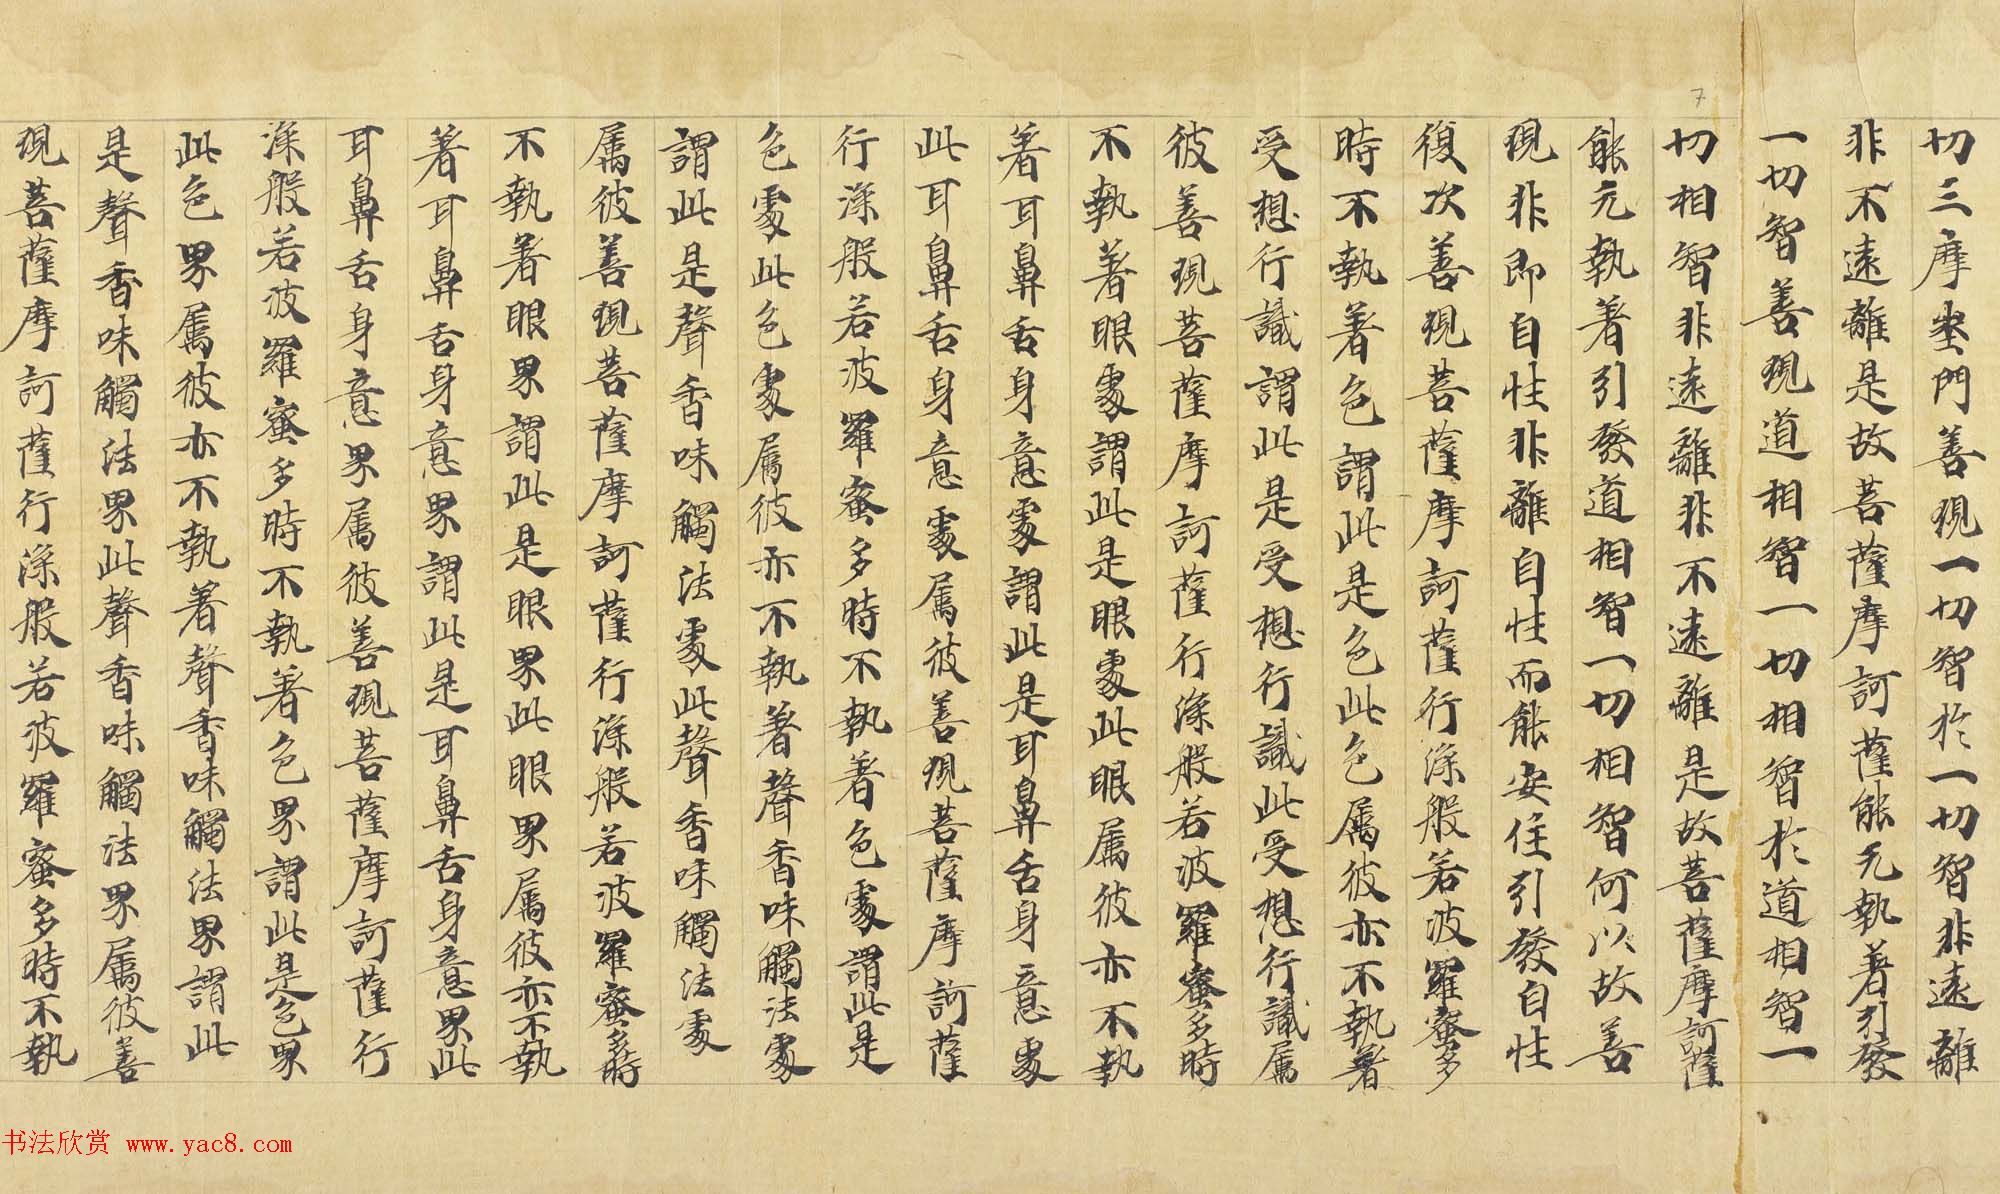 切三摩地門善現一切智於一切智非遠離
非不遠離是故菩薩摩訶薩能无執著引發
一切智善現道相智一切相智於道相智一
切相智非遠離非不遠離是故菩薩摩訶薩
能无執著引發道相智一切相智何以故善
現非即自性非離自性而能安住引發自性
復次善現菩薩摩訶薩行深般若波羅蜜多
時不執著色謂此是色此色屬彼亦不執著
受想行識謂此是受想行識此受想行識屬
彼善現菩薩摩訶薩行深般若波羅蜜多時
不執著眼處謂此是眼處此眼屬彼亦不執
著耳鼻舌身意處謂此是耳鼻舌身意處
此耳鼻舌身意處屬彼善現菩薩摩訶薩
行深般若波羅蜜多時不執著色處謂此是
色處此色處屬彼亦不執著聲香味觸法處
謂此是聲香味觸法處此聲香味觸法處
屬彼善現菩薩摩訶薩行深般若波羅蜜多時
不執著眼界謂此是眼界此眼界屬彼亦不執
著耳鼻舌身意界謂此是耳鼻舌身意界此
耳鼻舌身意界屬彼善現菩薩摩訶薩行
深般若波羅蜜多時不執著色界謂此是色界
此色界屬彼亦不執著聲香味觸法界謂此
是聲香味觸法界此聲香味觸法界屬彼善
現菩薩摩訶薩行深般若波羅蜜多時不執
7
书法欣赏 www.yac8.com